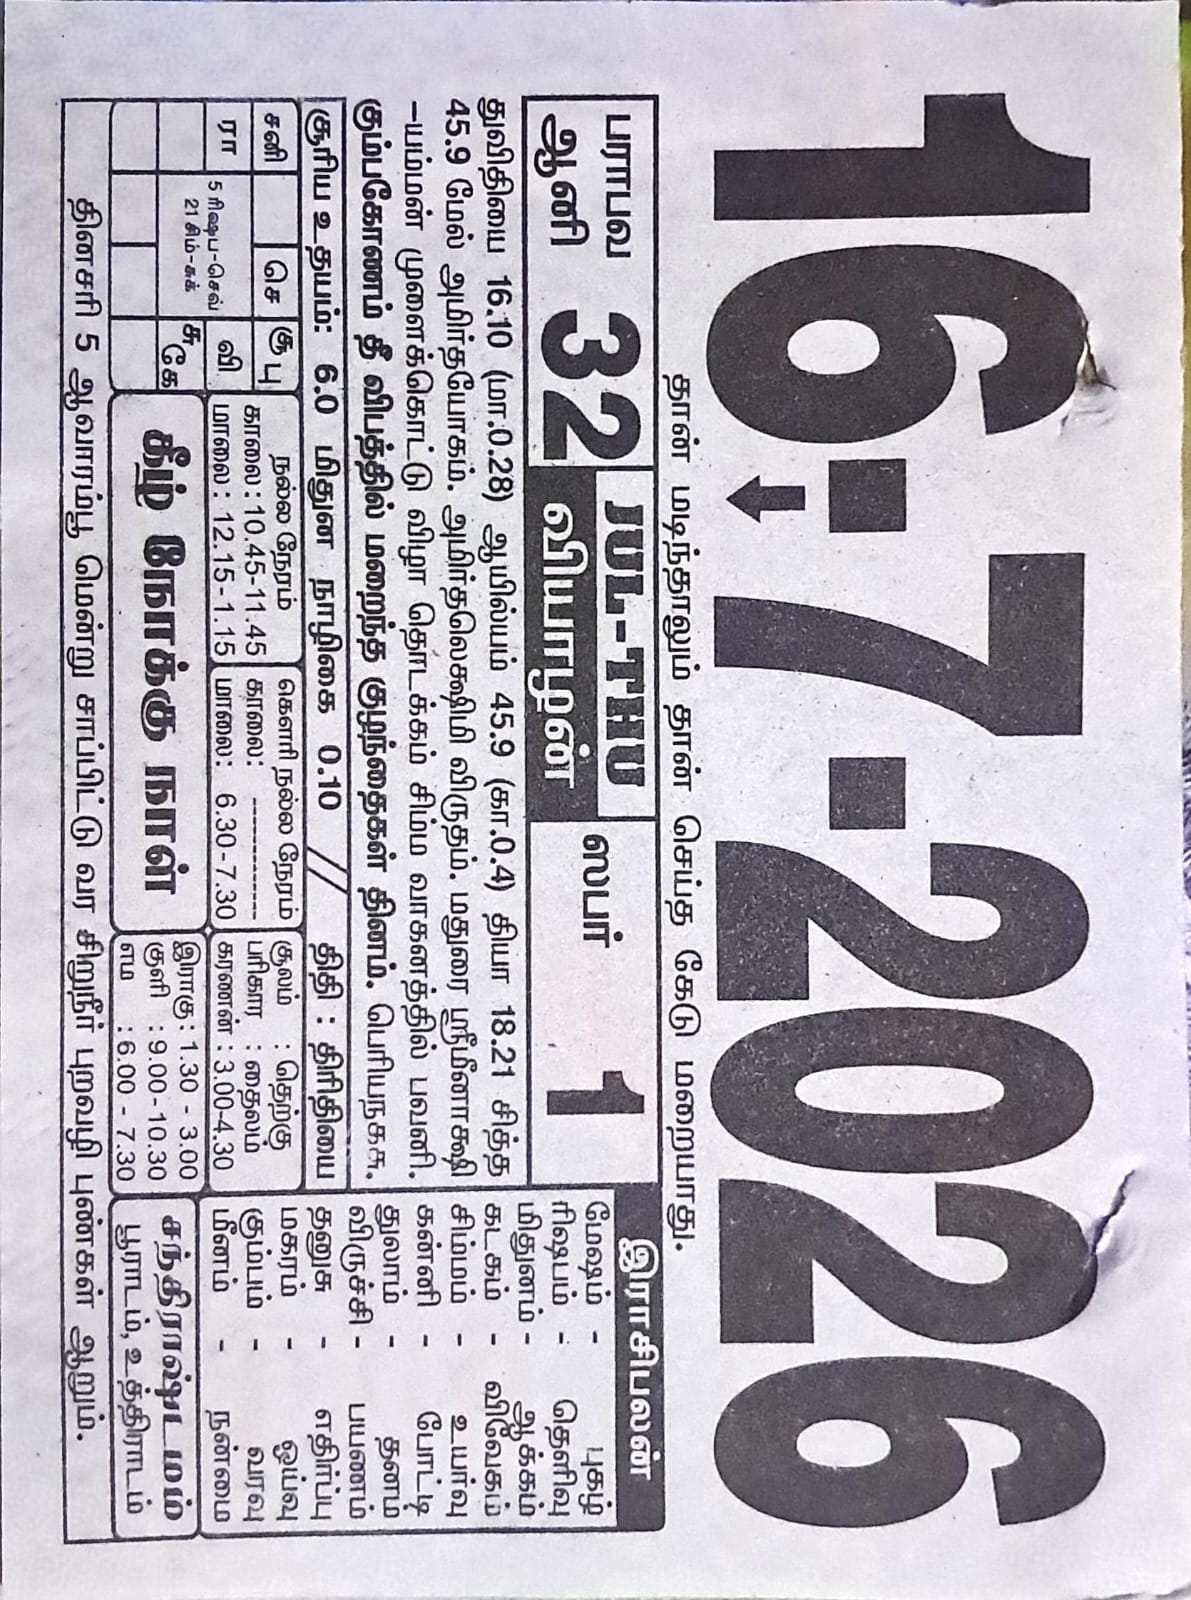 16-7-2026
தான் மடிந்தாலும் தான் செய்த கேடு மறையாது.
பராபவ
ஆனி 32
JUL-THU
வியாழன்
ஸபர் 1
துவிதியை 16.10 (மா.0.28) ஆயில்யம் 45.9 (கா.0.4) தியா 18.21 சித்த
45.9 மேல் அமிர்தயோகம். அமிர்தலெக்ஷிமி விருதம். மதுரை ஸ்ரீமீனாக்ஷி
-யம்மன் முளைக்கொட்டு விழா தொடக்கம் சிம்ம வாகனத்தில் பவனி.
கும்பகோணம் தீ விபத்தில் மறைந்த குழந்தைகள் தினம். பெரியநகசு.
சூரிய உதயம்: 6.0 மிதுன நாழிகை 0.10 // திதி : திரிதியை
சனி
செ
குபு
ரா
5 ரிஷப-செவ்
21 சிம்-சுக்
வி
சு
கே
நல்ல நேரம்
காலை: 10.45-11.45
மாலை: 12.15-1.15
கௌரி நல்ல நேரம்
காலை: ----------
மாலை: 6.30-7.30
சூலம் : தெற்கு
பரிகார : தைலம்
கரணன் : 3.00-4.30
கீழ் நோக்கு நாள்
இராகு: 1.30 - 3.00
குளி : 9.00-10.30
எம : 6.00 - 7.30
இராசிபலன்
மேஷம் - புகழ்
ரிஷபம் - தெளிவு
மிதுனம் - ஆக்கம்
கடகம் - விவேகம்
சிம்மம் - உயர்வு
கன்னி - போட்டி
துலாம் - தனம்
விருச்சி - பயணம்
தனுசு - எதிர்ப்பு
மகரம் - ஓய்வு
கும்பம் - வரவு
மீனம் - நன்மை
சந்திராஷ்டமம்
பூராடம், உத்திராடம்
தினசரி 5 ஆவாரம்பூ மென்று சாப்பிட்டு வர சிறுநீர் புறவழி புண்கள் ஆறும்.